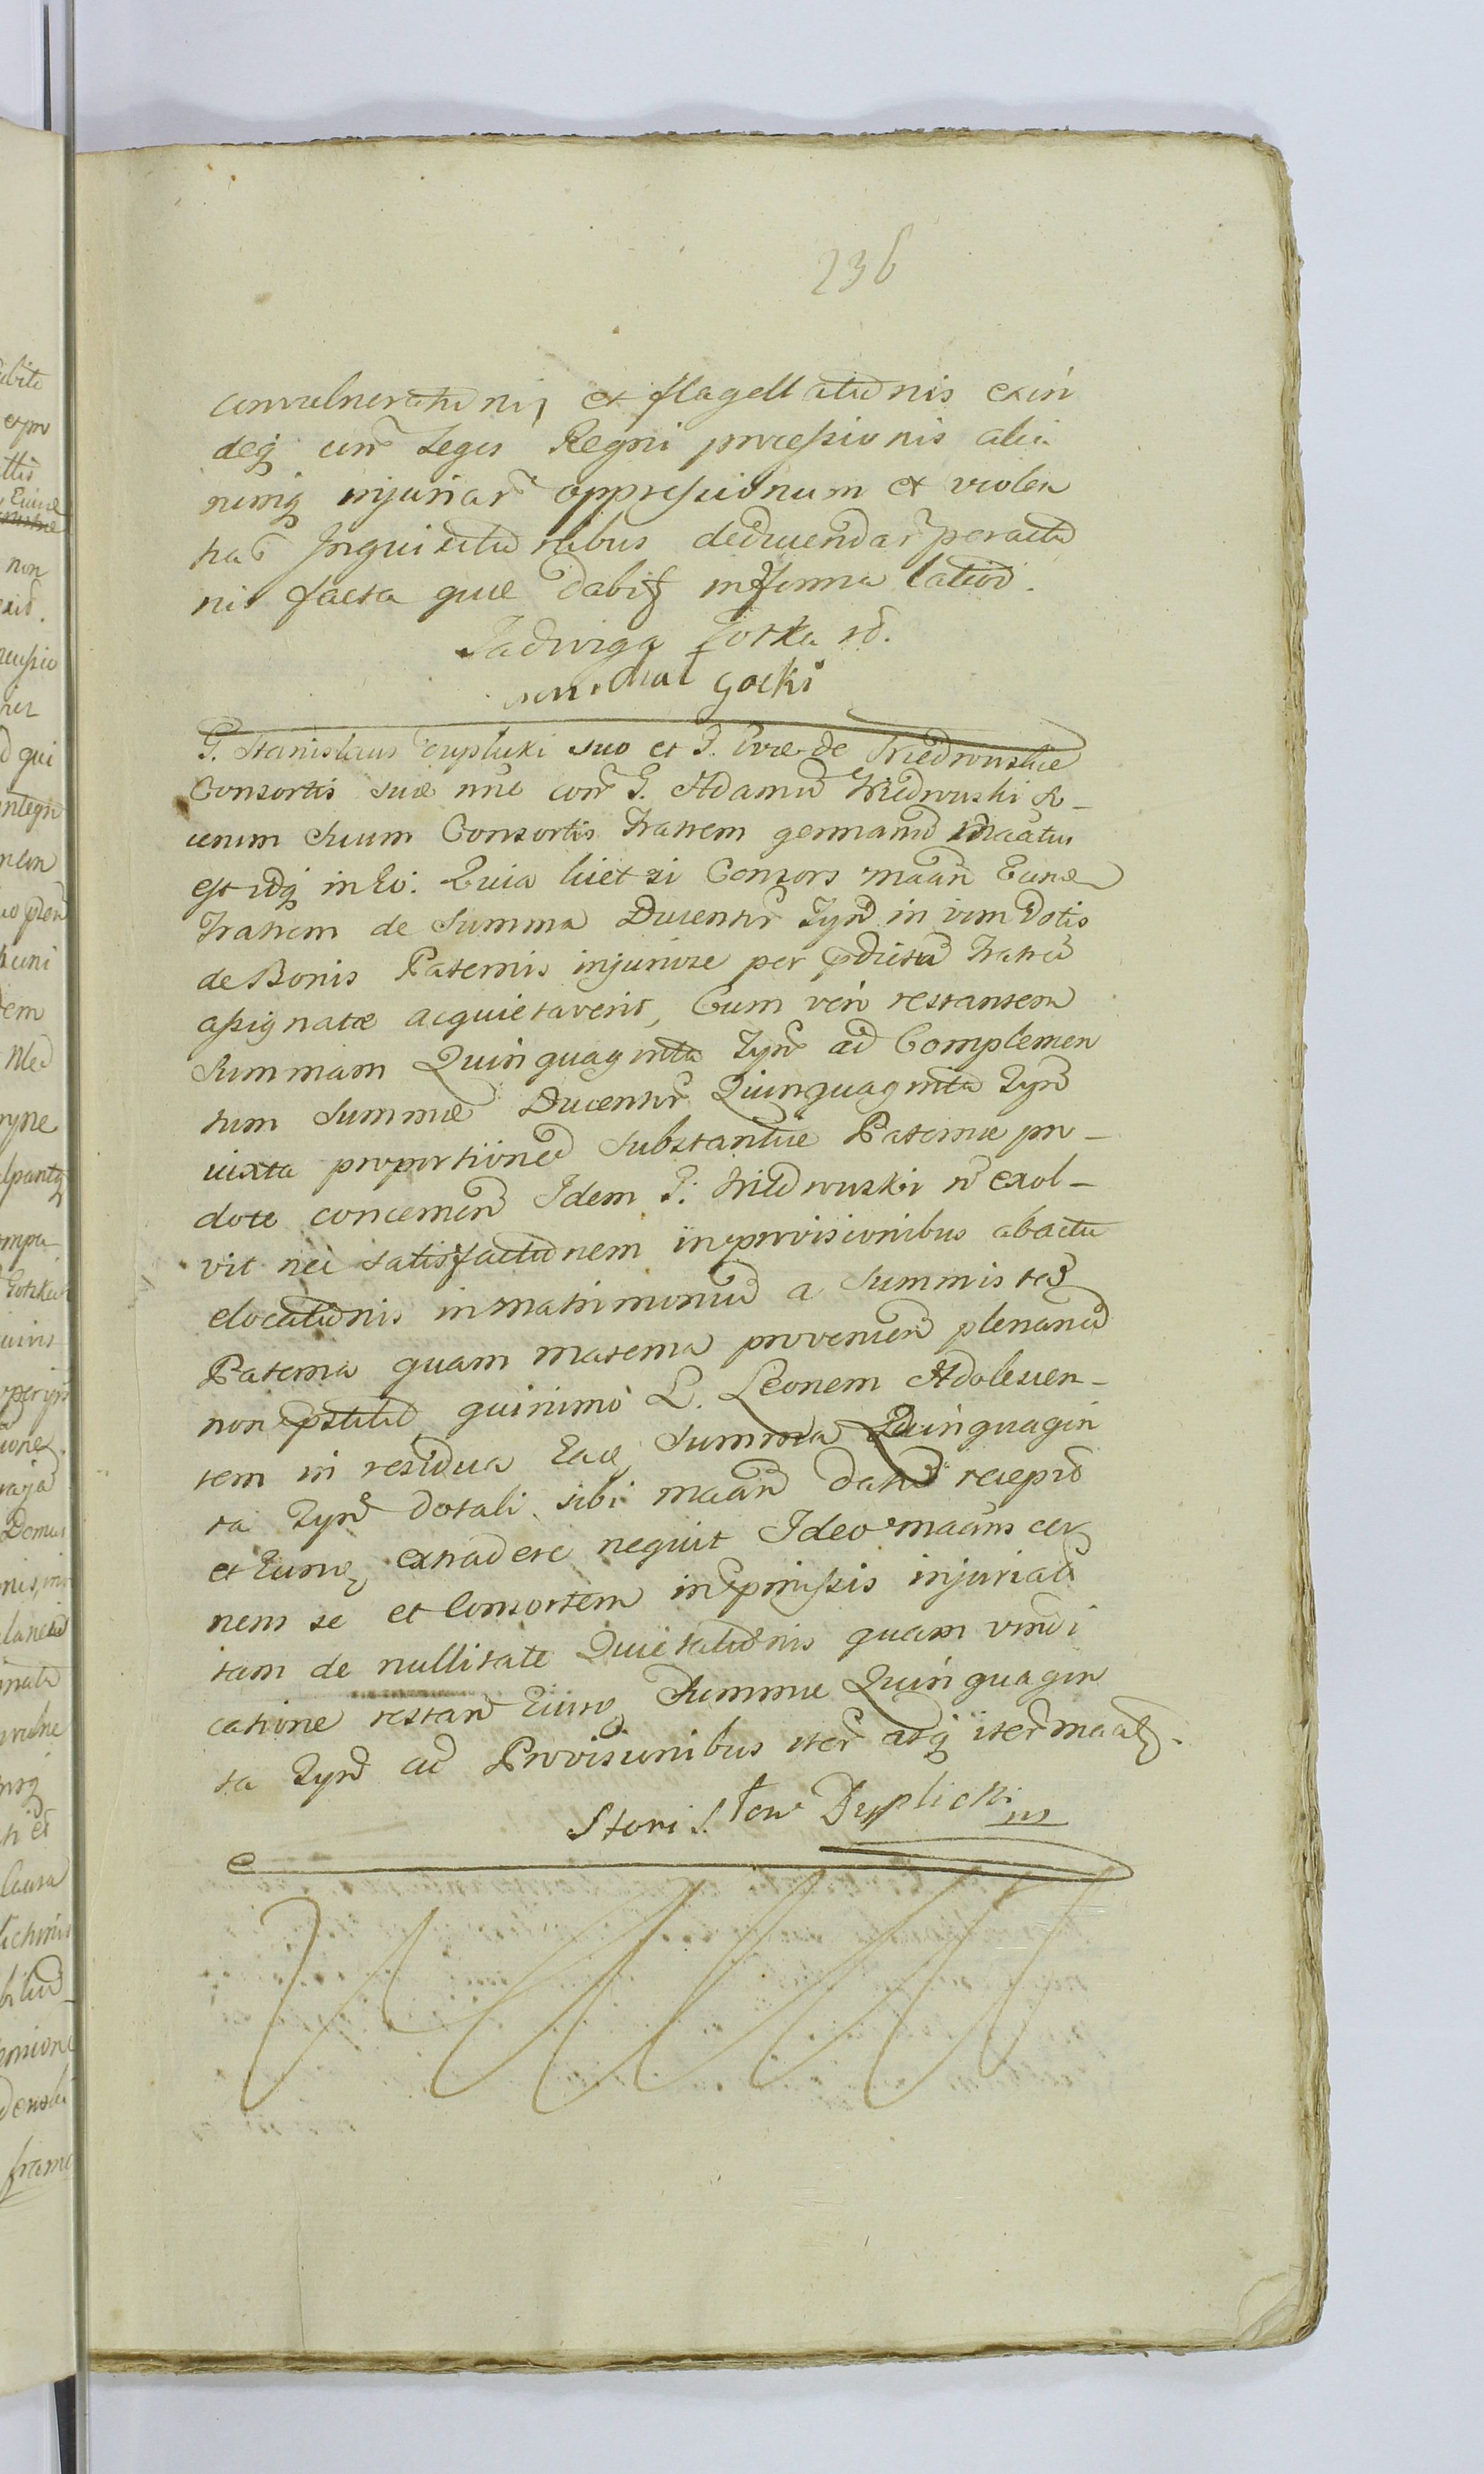 236
convulnerationis et flagellationis exin
deq contr Leges Regni processionis alia
rumq injuriar oppressionum et violen
tiar Inquisitionibus deducendar peracta
nis facta quæ dabitq in forma lation.
Jadwiga
Gocki
G. Stanislaus Cuplicki suo et G. Evæ de Niedrowskie
Consortis suæ nne contr G. Adamu Niedrwuski A-
vunum suum Consortis Fratrem germanu maatus
est idq in Eo. Quia licet si Consors maan Eund
Fratrem de Summa Ducentor Tynf in vim Dotis
de Bonis Paternis injuriose per pdictu Fratre
assignatæ acquietaverit, Cum ven restantem
Summam Quinquaginta Tynf ad Complemen
tum Summæ Ducentor Quinquaginta Tynf
iuxta proportione Substantiæ Paternæ pro-
dote concernen Idem G. Niedrwuski n exol-
vit nec satisfactionem in provisionibus ab actu
elocationis in matrimoniu a Summis ta
Paterna quam materna provenien plenaria
non pstitit quinimo L. Leonem Adolescen-
tem in residua Ead Summa Quinquagin
ta Tynf dotali sibi maan datu recepit
et Eund extradere nequit Ideo maans cer
nens se et Consortem in pmissis injuriat
tam de nullitate Quietationis quam vindi
catione restan Eiusd Summæ Quinquagin
ta Tynf ad Provisionibus iter atq iter maat.
Duplicki